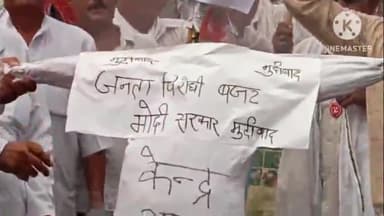 KINEMASTER
मुर्दाबाद मुर्दाबाद
जनता विरोधी बजट
मोदी सरकार मुर्दाबाद
केन्द्र